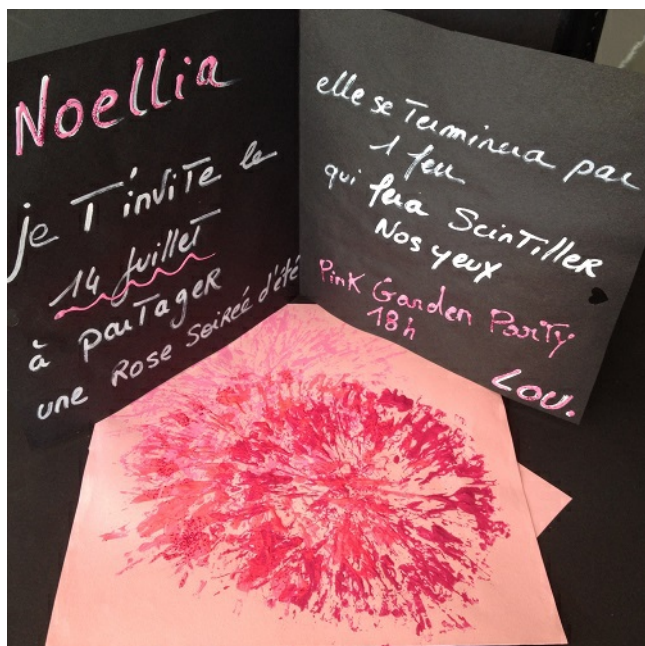 Noellia
je T'inviTe le
14 Juillet
à parTager
une Rose Soireé d'été
elle se Terminera par
1 feu
qui fera ScinTiller
Nos yeux
Pink Garden Party
18h
Lou.